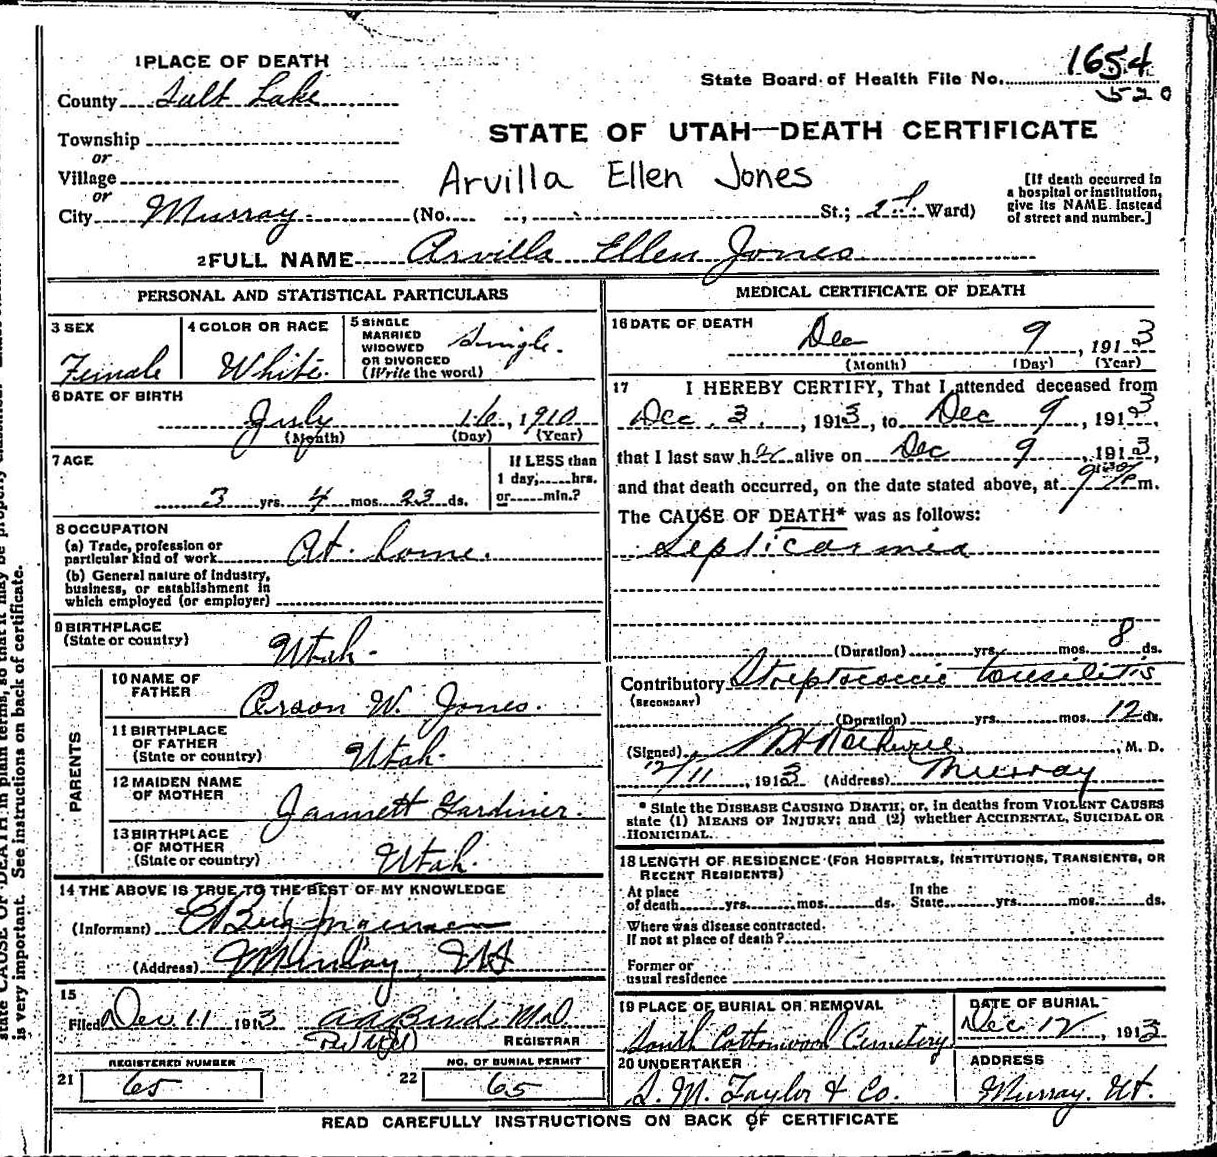 1 PLACE OF DEATH
State Board of Health File No. 1654
520
County Salt Lake
STATE OF UTAH—DEATH CERTIFICATE
Township
or
Village
Arvilla Ellen Jones
[If death occurred in a hospital or institution, give its NAME instead of street and number.]
or
City Murray (No. , St.; 2d Ward)
2 FULL NAME Arvilla Ellen Jones
PERSONAL AND STATISTICAL PARTICULARS
3 SEX Female
4 COLOR OR RACE White
5 SINGLE MARRIED WIDOWED OR DIVORCED (Write the word) Single.
6 DATE OF BIRTH
July 16, 1910
(Month) (Day) (Year)
7 AGE
3 yrs. 4 mos. 23 ds.
If LESS than
1 day, hrs.
or min.?
8 OCCUPATION
(a) Trade, profession or
particular kind of work At home.
(b) General nature of industry,
business, or establishment in
which employed (or employer)
9 BIRTHPLACE
(State or country) Utah.
PARENTS
10 NAME OF
FATHER Orson W. Jones.
11 BIRTHPLACE
OF FATHER
(State or country) Utah.
12 MAIDEN NAME
OF MOTHER Jannett Gardiner.
13 BIRTHPLACE
OF MOTHER
(State or country) Utah.
14 THE ABOVE IS TRUE TO THE BEST OF MY KNOWLEDGE
(Informant)
(Address) Murray, Ut
15
Filed Dec. 11 1913 M.D.
REGISTRAR
REGISTERED NUMBER
21 65
NO. OF BURIAL PERMIT
22 65
MEDICAL CERTIFICATE OF DEATH
16 DATE OF DEATH
Dec 9, 1913
(Month) (Day) (Year)
17 I HEREBY CERTIFY, That I attended deceased from
Dec. 3., 1913, to Dec 9, 1913,
that I last saw her alive on Dec 9, 1913,
and that death occurred, on the date stated above, at 9:30 P m.
The CAUSE OF DEATH* was as follows:
Septicaemia
(Duration) yrs. mos. 8 ds.
Contributory Streptococcic tonsilitis
(SECONDARY)
(Duration) yrs. mos. 12 ds.
(Signed) , M. D.
12/11, 1913 (Address) Murray
* State the DISEASE CAUSING DEATH, or, in deaths from VIOLENT CAUSES
state (1) MEANS OF INJURY; and (2) whether ACCIDENTAL, SUICIDAL OR
HOMICIDAL.
18 LENGTH OF RESIDENCE (FOR HOSPITALS, INSTITUTIONS, TRANSIENTS, OR
RECENT RESIDENTS)
At place
of death yrs. mos. ds.
In the
State yrs. mos. ds.
Where was disease contracted
If not at place of death?
Former or
usual residence
19 PLACE OF BURIAL OR REMOVAL
South Cottonwood Cemetery
DATE OF BURIAL
Dec 12, 1913
20 UNDERTAKER
S. M. Taylor & Co.
ADDRESS
Murray, Ut.
READ CAREFULLY INSTRUCTIONS ON BACK OF CERTIFICATE
state CAUSE OF DEATH in plain terms, so that it may be properly classified.
is very important. See instructions on back of certificate.